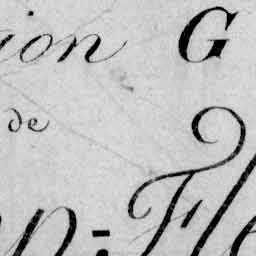 ion G
de
p: Fle